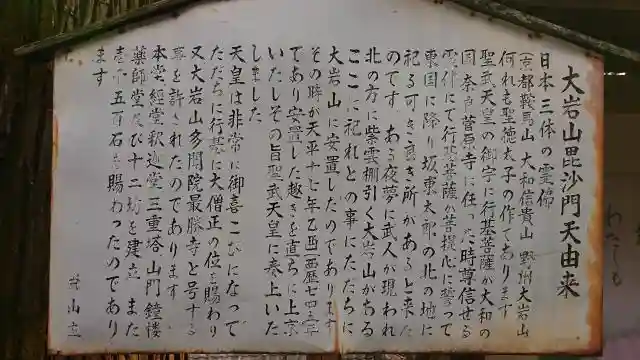 大岩山毘沙門天由来
日本三体の霊佛
(京都鞍馬山 大和信貴山 野州大岩山
何れも聖徳太子の作であります
聖武天皇の御宇に行基菩薩が大和の
国奈良菅原寺に住った時尊信せる
にて行基菩薩が菩提心に誓って
東国に降り坂東太郎の北の地に
祀る可き良き所があると来た
のです ある夜夢に武人が現われ
北の方に紫雲棚引く大岩山がある
ここに祀れとの事にただちに
大岩山に安置したのであります
その時が天平十七年乙酉(西歴七四五)
であり安置した趣きを直ちに上京
いたしその旨聖武天皇に奏上いた
しました
天皇は非常に御喜こびになって
ただちに行基に大僧正の位を賜わり
又大岩山多聞院最勝寺と号する
事を許されたのであります
本堂 経堂 釈迦堂 三重塔 山門 鐘楼
薬師堂及び十二坊を建立 また
壱千五百石を賜わったのであり
ます
当山主